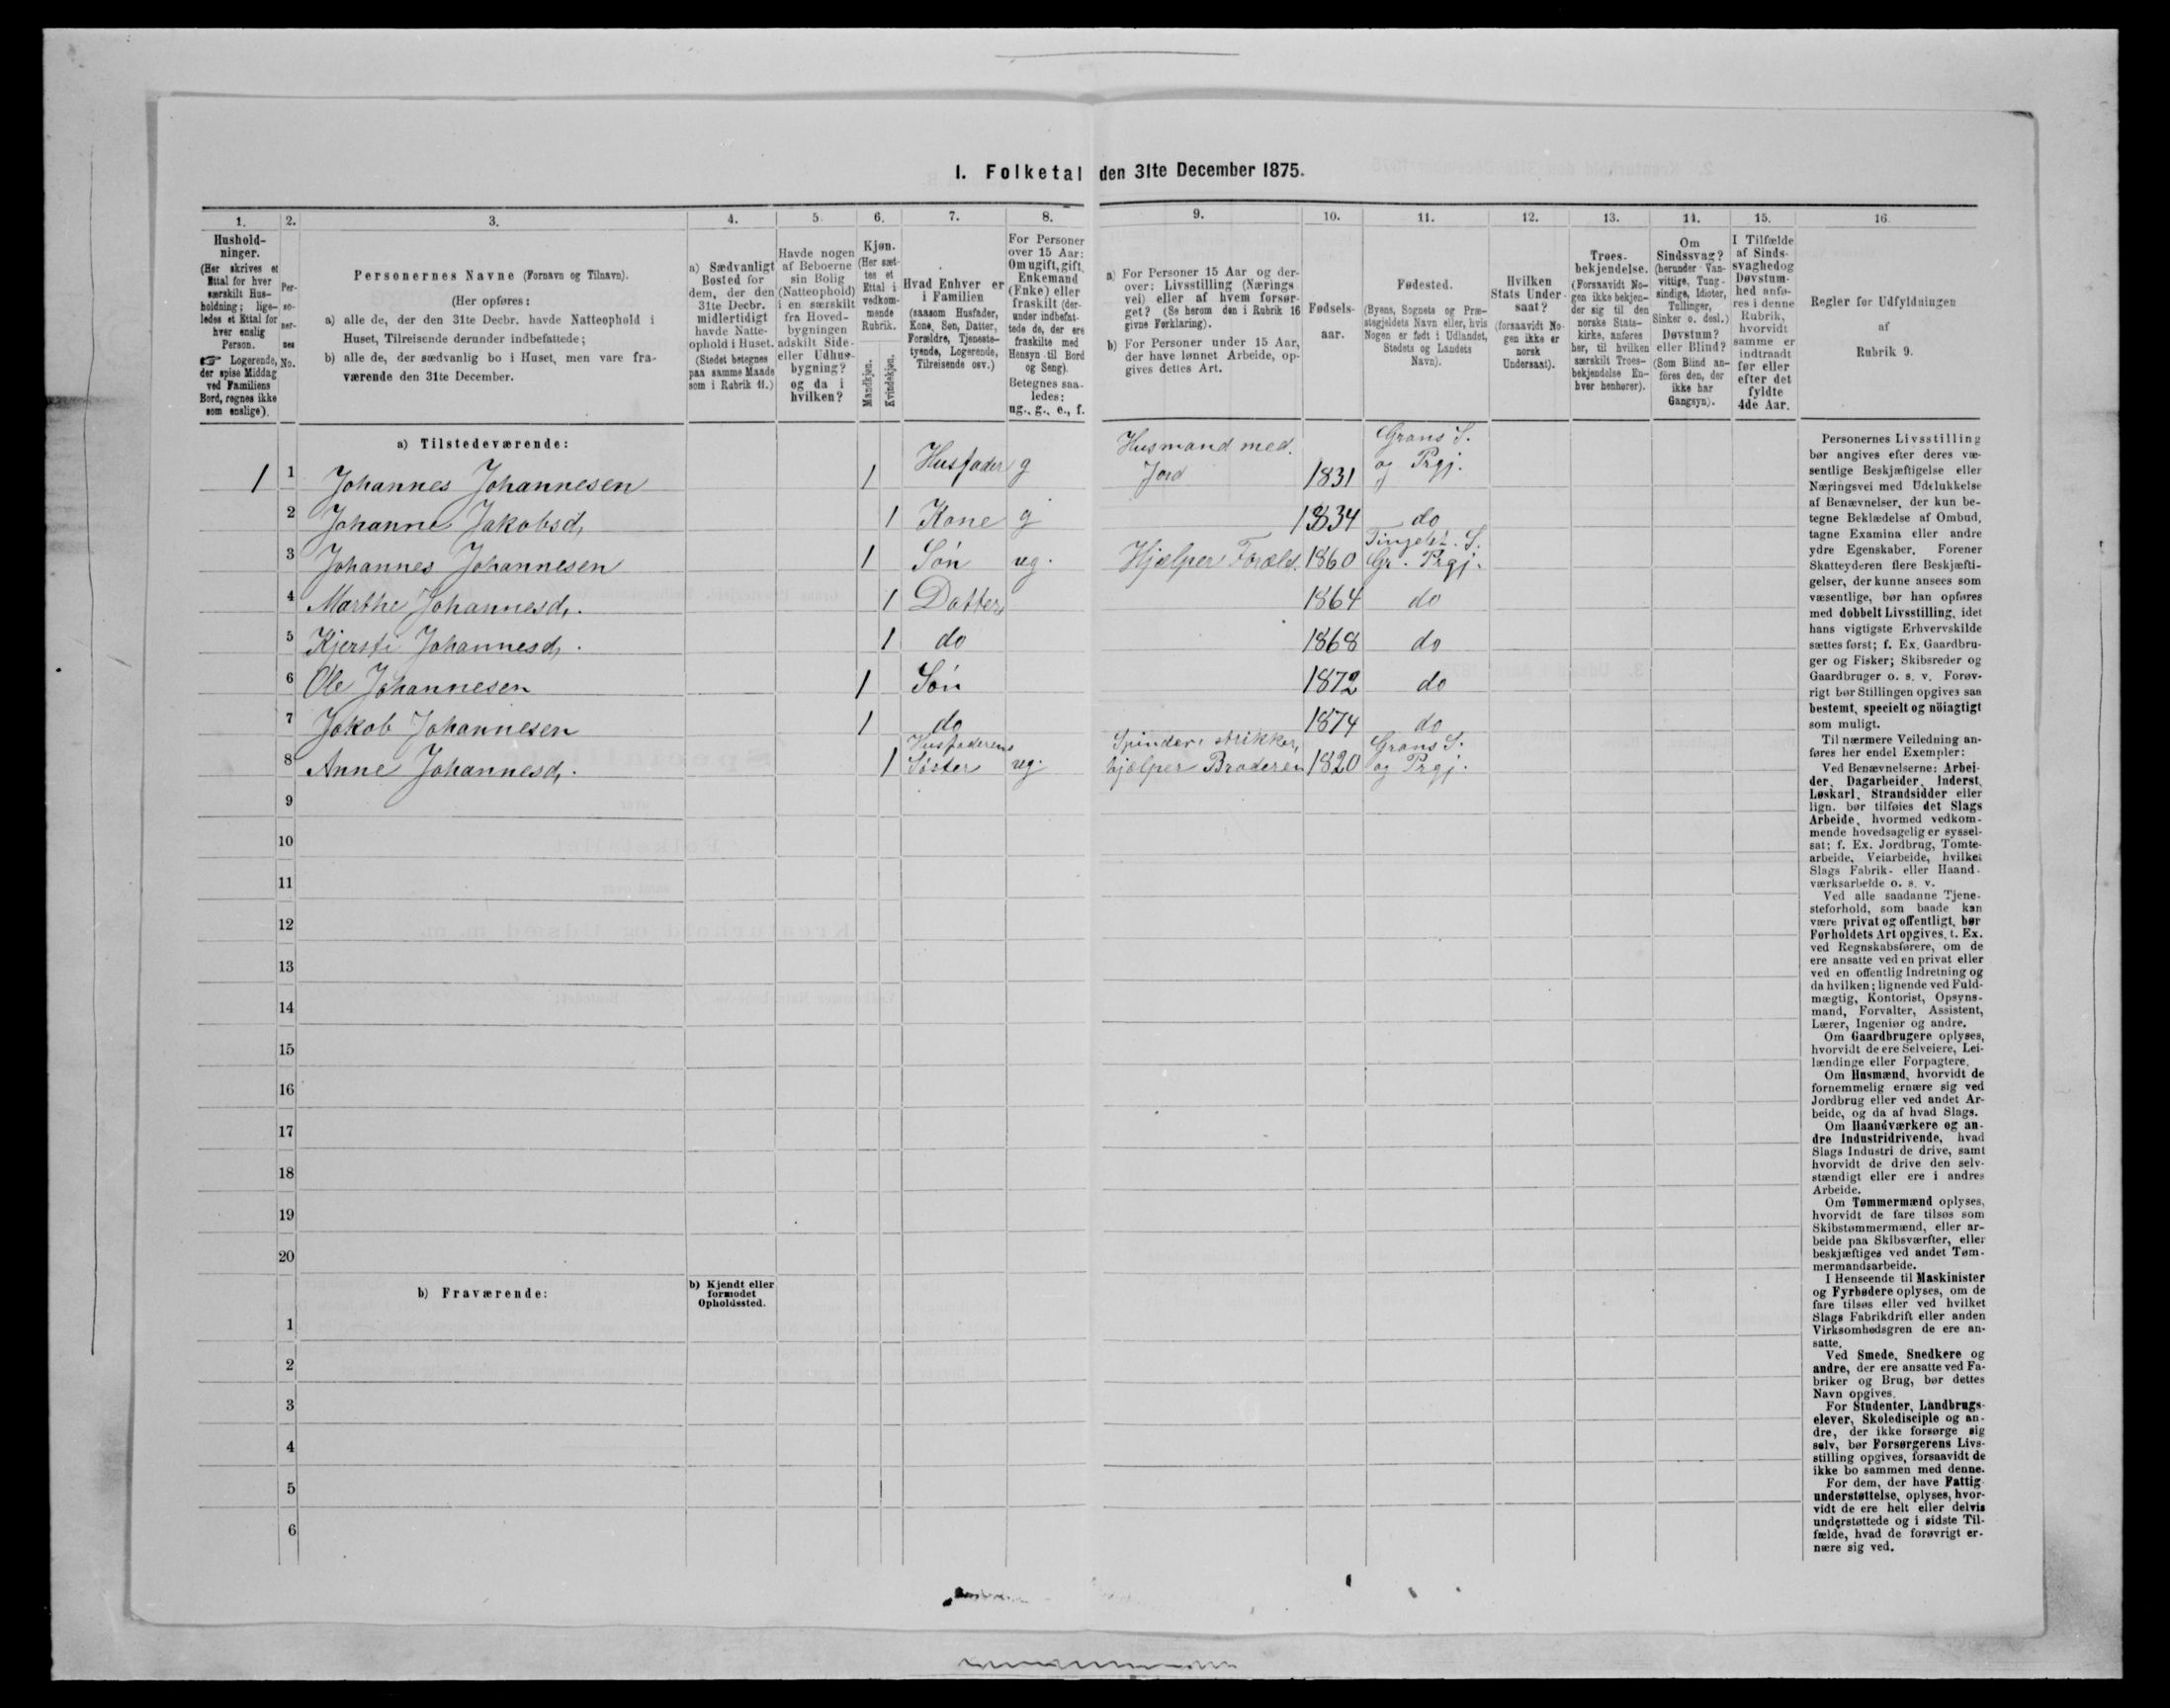 1. Folketal den 31te December 1875.
1.
2.
3.
4.
5.
6.
7.
8.
9.
10.
11.
12.
13.
14.
15.
16.
Hushold-
ninger.
(Her skrives et
Ettal for hver
særskilt Hus-
holdning; lige-
ledes et Ettal for
hver enslig
Person.
☞ Logerende,
der spise Middag
ved Familiens
Bord, regnes ikke
som enslige).
Per-
so-
ner-
nes
No.
Personernes Navne (Fornavn og Tilnavn).
(Her opføres:
a) alle de, der den 31te Decbr. havde Natteophold i
Huset, Tilreisende derunder indbefattede;
b) alle de, der sædvanlig bo i Huset, men vare fra-
værende den 31te December.
a) Sædvanligt
Bosted for
dem, der den
31te Decbr.
midlertidigt
havde Natte-
ophold i Huset.
(Stedet betegnes
paa samme Maade
som i Rubrik 11.)
Havde nogen
af Beboerne
sin Bolig
(Natteophold)
i en særskilt
fra Hoved-
bygningen
adskilt Side-
eller Udhus-
bygning?
og da i
hvilken?
Kjøn.
(Her sæt-
tes et
Ettal i
vedkom-
mende
Rubrik.
Mandkjøn.
Kvindekjøn.
Hvad Enhver er
i Familien
(saasom Husfader,
Kone, Søn, Datter,
Forældre, Tjeneste-
tyende, Logerende,
Tilreisende osv.)
For Personer
over 15 Aar:
Om ugift, gift,
Enkemand
(Enke) eller
fraskilt (der-
under indbefat-
tede de, der ere
fraskilte med
Hensyn til Bord
og Seng).
Betegnes saa-
ledes:
ug., g., e., f.
a) For Personer 15 Aar og der-
over: Livsstilling (Nærings
vei) eller af hvem forsør-
get? (Se herom den i Rubrik 16
givne Forklaring).
b) For Personer under 15 Aar,
der have lønnet Arbeide, op-
gives dettes Art.
Fødsels-
aar.
Fødested.
(Byens, Sognets og Præ-
stegjeldets Navn eller, hvis
Nogen er født i Udlandet,
Stedets og Landets
Navn).
Hvilken
Stats Under-
saat?
(forsaavidt No-
gen ikke er
norsk
Undersaat).
Troes-
bekjendelse.
(Forsaavidt No-
gen ikke bekjen-
der sig til den
norske Stats-
kirke, anføres
her, til hvilken
særskilt Troes-
bekjendelse En-
hver henhører).
Om
Sindssvag?
(herunder Van-
vittige, Tung-
sindige, Idioter,
Tullinger,
Sinker o. desl.)
Døvstum?
eller Blind?
(Som Blind an-
føres den, der
ikke har
Gangsyn).
I Tilfælde
af Sinds-
svaghed og
Døvstum-
hed anfø-
res i denne
Rubrik,
hvorvidt
samme er
indtraadt
før eller
efter det
fyldte
4de Aar.
Regler for Udfyldningen
af
Rubrik 9.
a) Tilstedeværende:
1 1 Johannes Johannesen 1 Husfader g Husmand med Jord 1831 Grans S. og Prgj.
2 Johanne Jakobsd, 1 Kone g 1834 do
3 Johannes Johannesen 1 Søn ug. Hjælper Foræld. 1860 Tingelst. S. Gr. Prgj.
4 Marthe Johannesd, 1 Datter 1864 do
5 Kjersti Johannesd, 1 do 1868 do
6 Ole Johannesen 1 Søn 1872 do
7 Jakob Johannesen 1 do 1874 do
8 Anne Johannesd, 1 Husfaderens Søster ug. Spinder, strikker, hjælper Broderen 1820 Grans S. og Prgj.
9
10
11
12
13
14
15
16
17
18
19
20
b) Fraværende:
b) Kjendt eller
formodet
Opholdssted.
1
2
3
4
5
6
Personernes Livsstilling
bør angives efter deres væ-
sentlige Beskjæftigelse eller
Næringsvei med Udelukkelse
af Benævnelser, der kun be-
tegne Beklædelse af Ombud,
tagne Examina eller andre
ydre Egenskaber. Forener
Skatteyderen flere Beskjæfti-
gelser, der kunne ansees som
væsentlige, bør han opføres
med dobbelt Livsstilling, idet
hans vigtigste Erhvervskilde
sættes først; f. Ex. Gaardbru-
ger og Fisker; Skibsreder og
Gaardbruger o. s. v. Forøv-
rigt bør Stillingen opgives saa
bestemt, specielt og nöiagtigt
som muligt.
Til nærmere Veiledning an-
føres her endel Exempler:
Ved Benævnelserne: Arbei-
der, Dagarbeider, Inderst,
Løskarl, Strandsidder eller
lign. bør tilføies det Slags
Arbeide, hvormed vedkom-
mende hovedsagelig er syssel-
sat; f. Ex. Jordbrug, Tomte-
arbeide, Veiarbeide, hvilket
Slags Fabrik- eller Haand-
værksarbeide o. s. v.
Ved alle saadanne Tjene-
steforhold, som baade kan
være privat og offentligt, bør
Forholdets Art opgives, t. Ex.
ved Regnskabsførere, om de
ere ansatte ved en privat eller
ved en offentlig Indretning og
da hvilken; lignende ved Fuld-
mægtig, Kontorist, Opsyns-
mand, Forvalter, Assistent,
Lærer, Ingeniør og andre.
Om Gaardbrugere oplyses,
hvorvidt de ere Selveiere, Lei-
lændinge eller Forpagtere.
Om Husmænd, hvorvidt de
fornemmelig ernære sig ved
Jordbrug eller ved andet Ar-
beide, og da af hvad Slags.
Om Haandværkere og an-
dre Industridrivende, hvad
Slags Industri de drive, samt
hvorvidt de drive den selv-
stændigt eller ere i andres
Arbeide.
Om Tømmermænd oplyses,
hvorvidt de fare tilsøs som
Skibstømmermænd, eller ar-
beide paa Skibsværfter, eller
beskjæftiges ved andet Tøm-
mermandsarbeide.
I Henseende til Maskinister
og Fyrbødere oplyses, om de
fare tilsøs eller ved hvilket
Slags Fabrikdrift eller anden
Virksomhedsgren de ere an-
satte.
Ved Smede, Snedkere og
andre, der ere ansatte ved Fa-
briker og Brug, bør dettes
Navn opgives.
For Studenter, Landbrugs-
elever, Skoledisciple og an-
dre, der ikke forsørge sig
selv, bør Forsørgerens Livs-
stilling opgives, forsaavidt de
ikke bo sammen med denne.
For dem, der have Fattig-
understøttelse, oplyses, hvor-
vidt de ere helt eller delvis
understøttede og i sidste Til-
fælde, hvad de forøvrigt er-
nære sig ved.